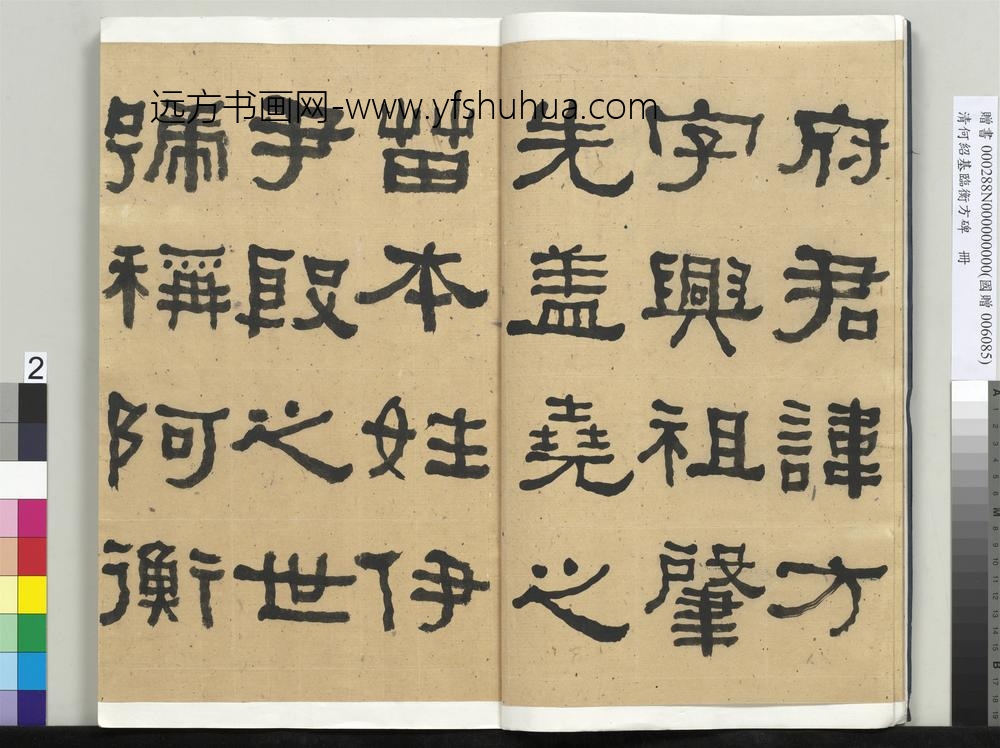 府君諱方
字興祖肇
先盖堯之
苗本姓伊
尹殷之世
號稱阿衡
远方书画网-www.yfshuhua.com
贈書 000288N000000000(國贈 006085)
清何紹基臨衡方碑 冊
2